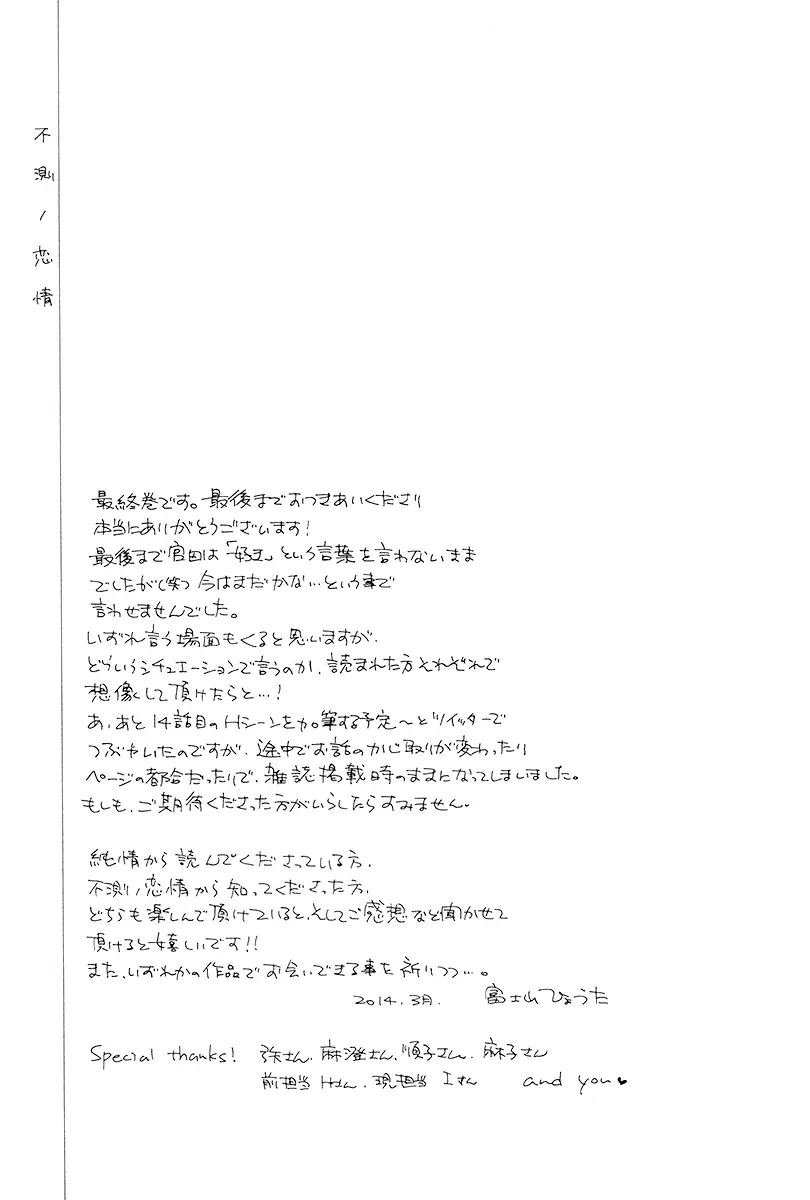 不測ノ恋情
最終巻です。最後までおつきあいくださり
本当にありがとうございます!
最後まで官田は「好き」という言葉を言わないまま
でしたが(笑) 今はまだかな…という事で
言わせませんでした。
いずれ言う場面もくると思いますが、
どういうシチュエーションで言うのか、読まれた方それぞれで
想像して頂けたらと…!
あ、あと14話目のHシーンを加筆する予定〜とツイッターで
つぶやいたのですが、途中でお話の心取りが変わったり
ページの都合だったりで、雑誌掲載時のままとなってしまいました。
もしも、ご期待くださった方がいらしたらすみません。
純情から読んでくださっている方、
不測ノ恋情から知ってくださった方、
どちらも楽しんで頂けていると、そしてご感想など聞かせて
頂けると嬉しいです!!
また、いずれかの作品でお会いできる事を祈りつつ…。
2014.3月. 富士山ひょうた
Special thanks! 弥さん、麻澄さん、順子さん、麻子さん
前担当Hさん、現担当Iさん and you♥